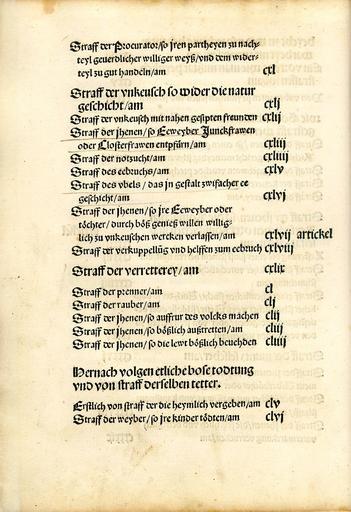 Straff der Procurator/so jren partheyen zu nach-
teyl geuerdlicher williger weyß/vnd dem wider-
teyl zu gut handeln/am cxl
Straff der vnkeusch so wider die natur
geschicht/am cxlj
Straff der vnkeusch mit nahen gesipten freunden cxlij
Straff der jhenen/so Eeweyber Junckfrawen
oder Closterfrawen entpfürn/am cxliij
Straff der notzucht/am cxliiij
Straff des eebruchs/am cxlv
Straff des vbels/das jn gestalt zwifacher ee
geschicht/am cxlvj
Straff der jhenen/so jre Eeweyber oder
töchter/durch böß genieß willen willig-
lich zu vnkeuschen wercken verlassen/am cxlvij artickel
Straff der verkuppellūg vnd helffen zum eebruch cxlviij
Straff der verretterey/am cxlix
Straff der prenner/am cl
Straff der rauber/am clj
Straff der jhenen/so auffrur des volcks machen clij
Straff der jhenen/so bößlich außtretten/am cliij
Straff der jhenen/so die lewt bößlich beuehden cliiij
Hernach volgen etliche bose todtung
vnd von straff derselben tetter.
Erstlich von straff der die heymlich vergeben/am clv
Straff der weyber/so jre kinder tödten/am clvj